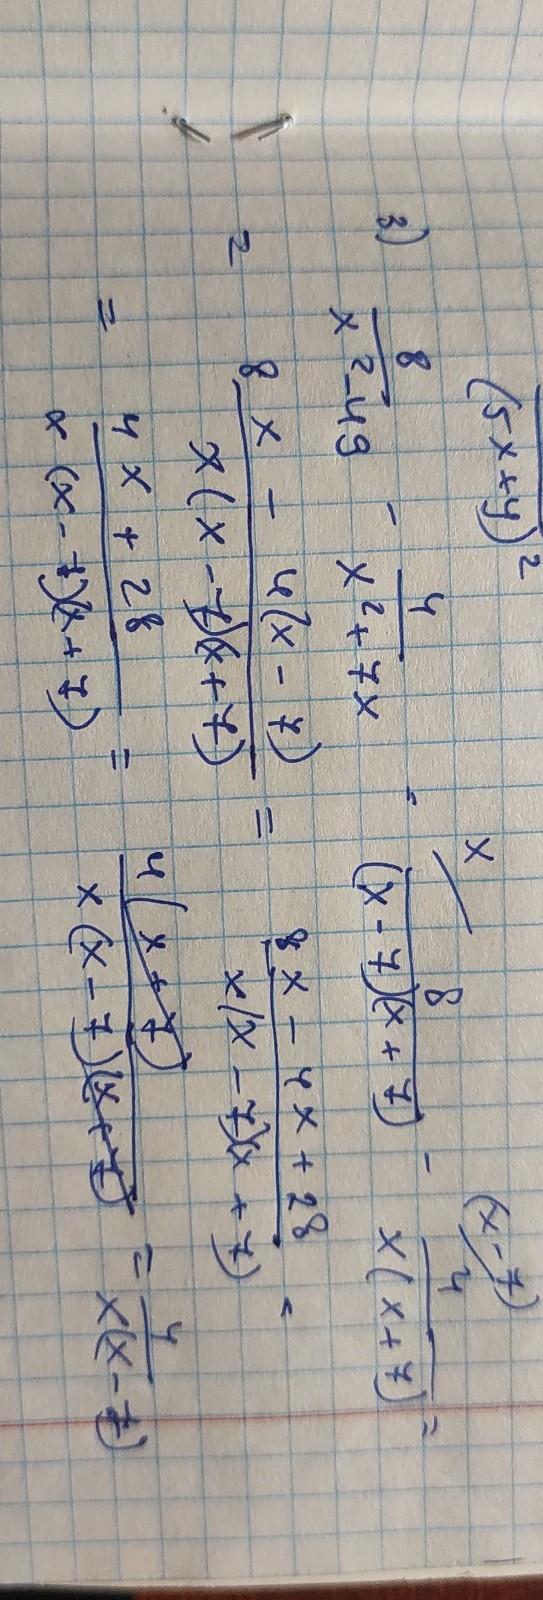 (5x+y)²
3) 8/(x²-49) - 4/(x²+7x) = x/ 8/((x-7)(x+7)) - (x-7)/ 4/(x(x+7)) =
= (8x - 4(x-7))/(x(x-7)(x+7)) = (8x - 4x + 28)/(x(x-7)(x+7)) =
= (4x + 28)/(x(x-7)(x+7)) = 4(x+7)/(x(x-7)(x+7)) = 4/(x(x-7))